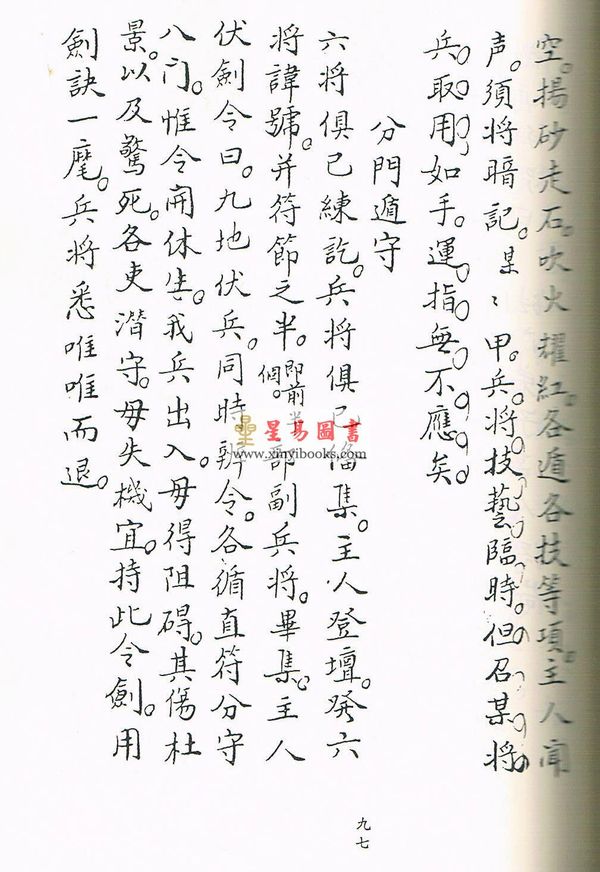 空。揚砂走石。吹火耀紅。各遁各技等項。主人聞
声。須将暗記。某〻甲。兵将技藝。臨時。但召某将
兵。取用如手。運指無不應矣。
分門遁守
六将俱已練訖。兵将俱已俻集。主人登壇。発六
将諱號。并符節之半。即前半個。部副兵将。畢集。主人
伏劍令曰。九地伏兵。同時辨令。各循直符分守
八门。惟令開休生。我兵出入。毋得阻碍。其傷杜
景。以及驚死。各吏潛守。毋失機宜。持此令劍。用
劍訣一麾。兵将悉唯唯而退。
星易圖書
www.xinyibooks.com
九七